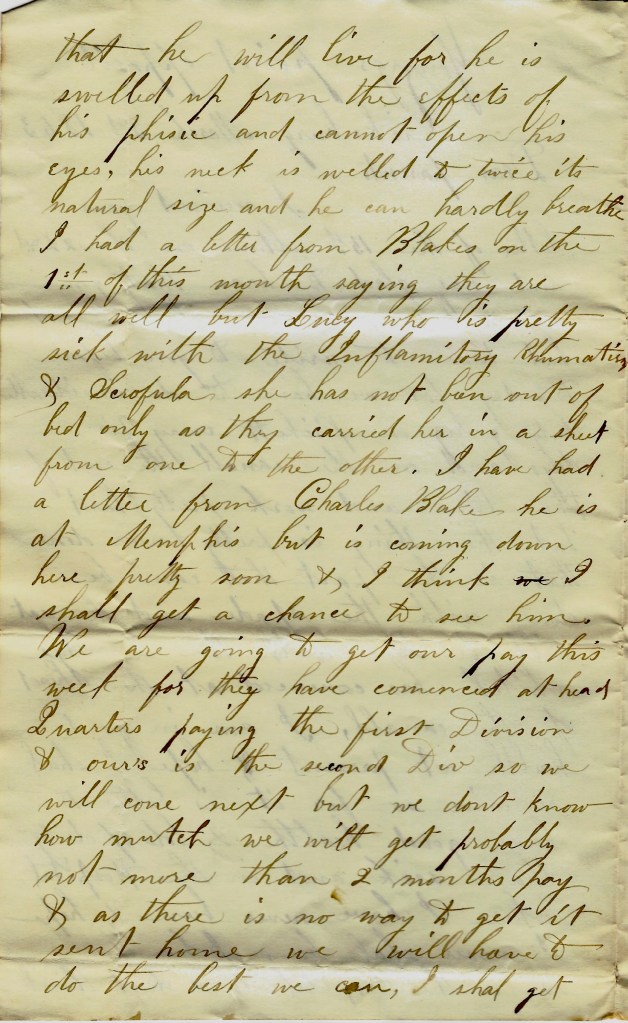 that he will live for he is
swelled up from the effects of
his phisic and cannot open his
eyes, his neck is welled to twice its
natural size and he can hardly breathe
I had a letter from Blakes on the
1st of this month saying they are
all well but Lucy who is pretty
sick with the Inflamitory Rhumatism
& Scrofula she has not ben out of
bed only as they carried her in a sheet
from one to the other. I have had
a letter from Charles Blake he is
at Memphis but is coming down
here pretty soon & I think we I
shall get a chance to see him.
We are going to get our pay this
week for they have comenced at head
Quarters paying the first Division
& ours is the second Div so we
will cone next but we dont know
how mutch we will get probably
not more than 2 months pay
& as there is no way to get it
sent home we will have to
do the best we can, I shal get